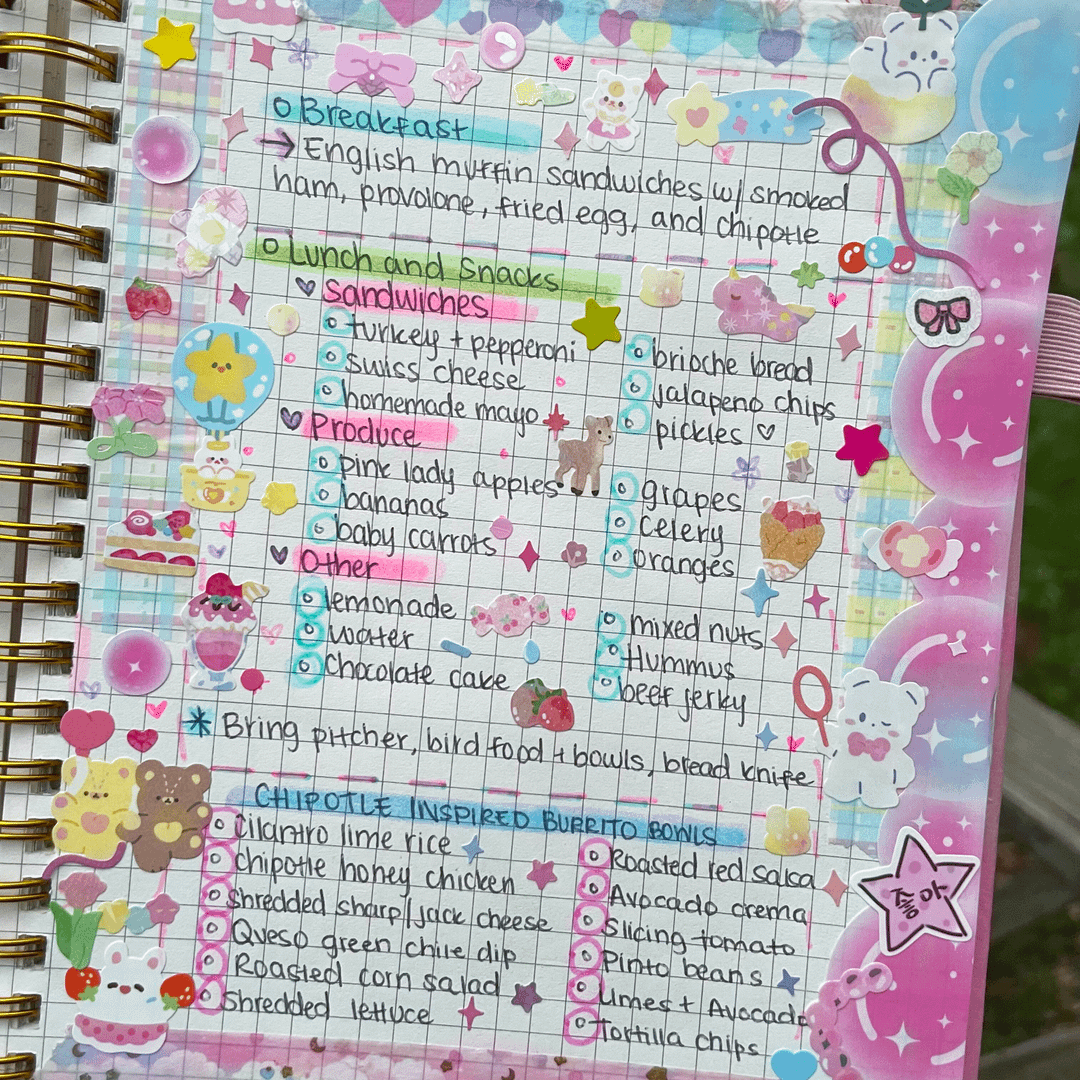 Breakfast
→ English muffin sandwiches w/ smoked
ham, provolone, fried egg, and chipotle
Lunch and Snacks
Sandwiches
turkey + pepperoni
swiss cheese
homemade mayo
brioche bread
jalapeno chips
pickles ♡
Produce
pink lady apples
bananas
baby carrots
grapes
celery
oranges
Other
lemonade
water
chocolate cake
mixed nuts
Hummus
beef jerky
* Bring pitcher, bird food + bowls, bread knife
CHIPOTLE INSPIRED BURRITO BOWLS
Cilantro lime rice
Chipotle honey chicken
Shredded sharp/jack cheese
Queso green chile dip
Roasted corn salad
Shredded lettuce
Roasted red salsa
Avocado crema
Slicing tomato
Pinto beans
Limes + Avocado
Tortilla chips
좋아